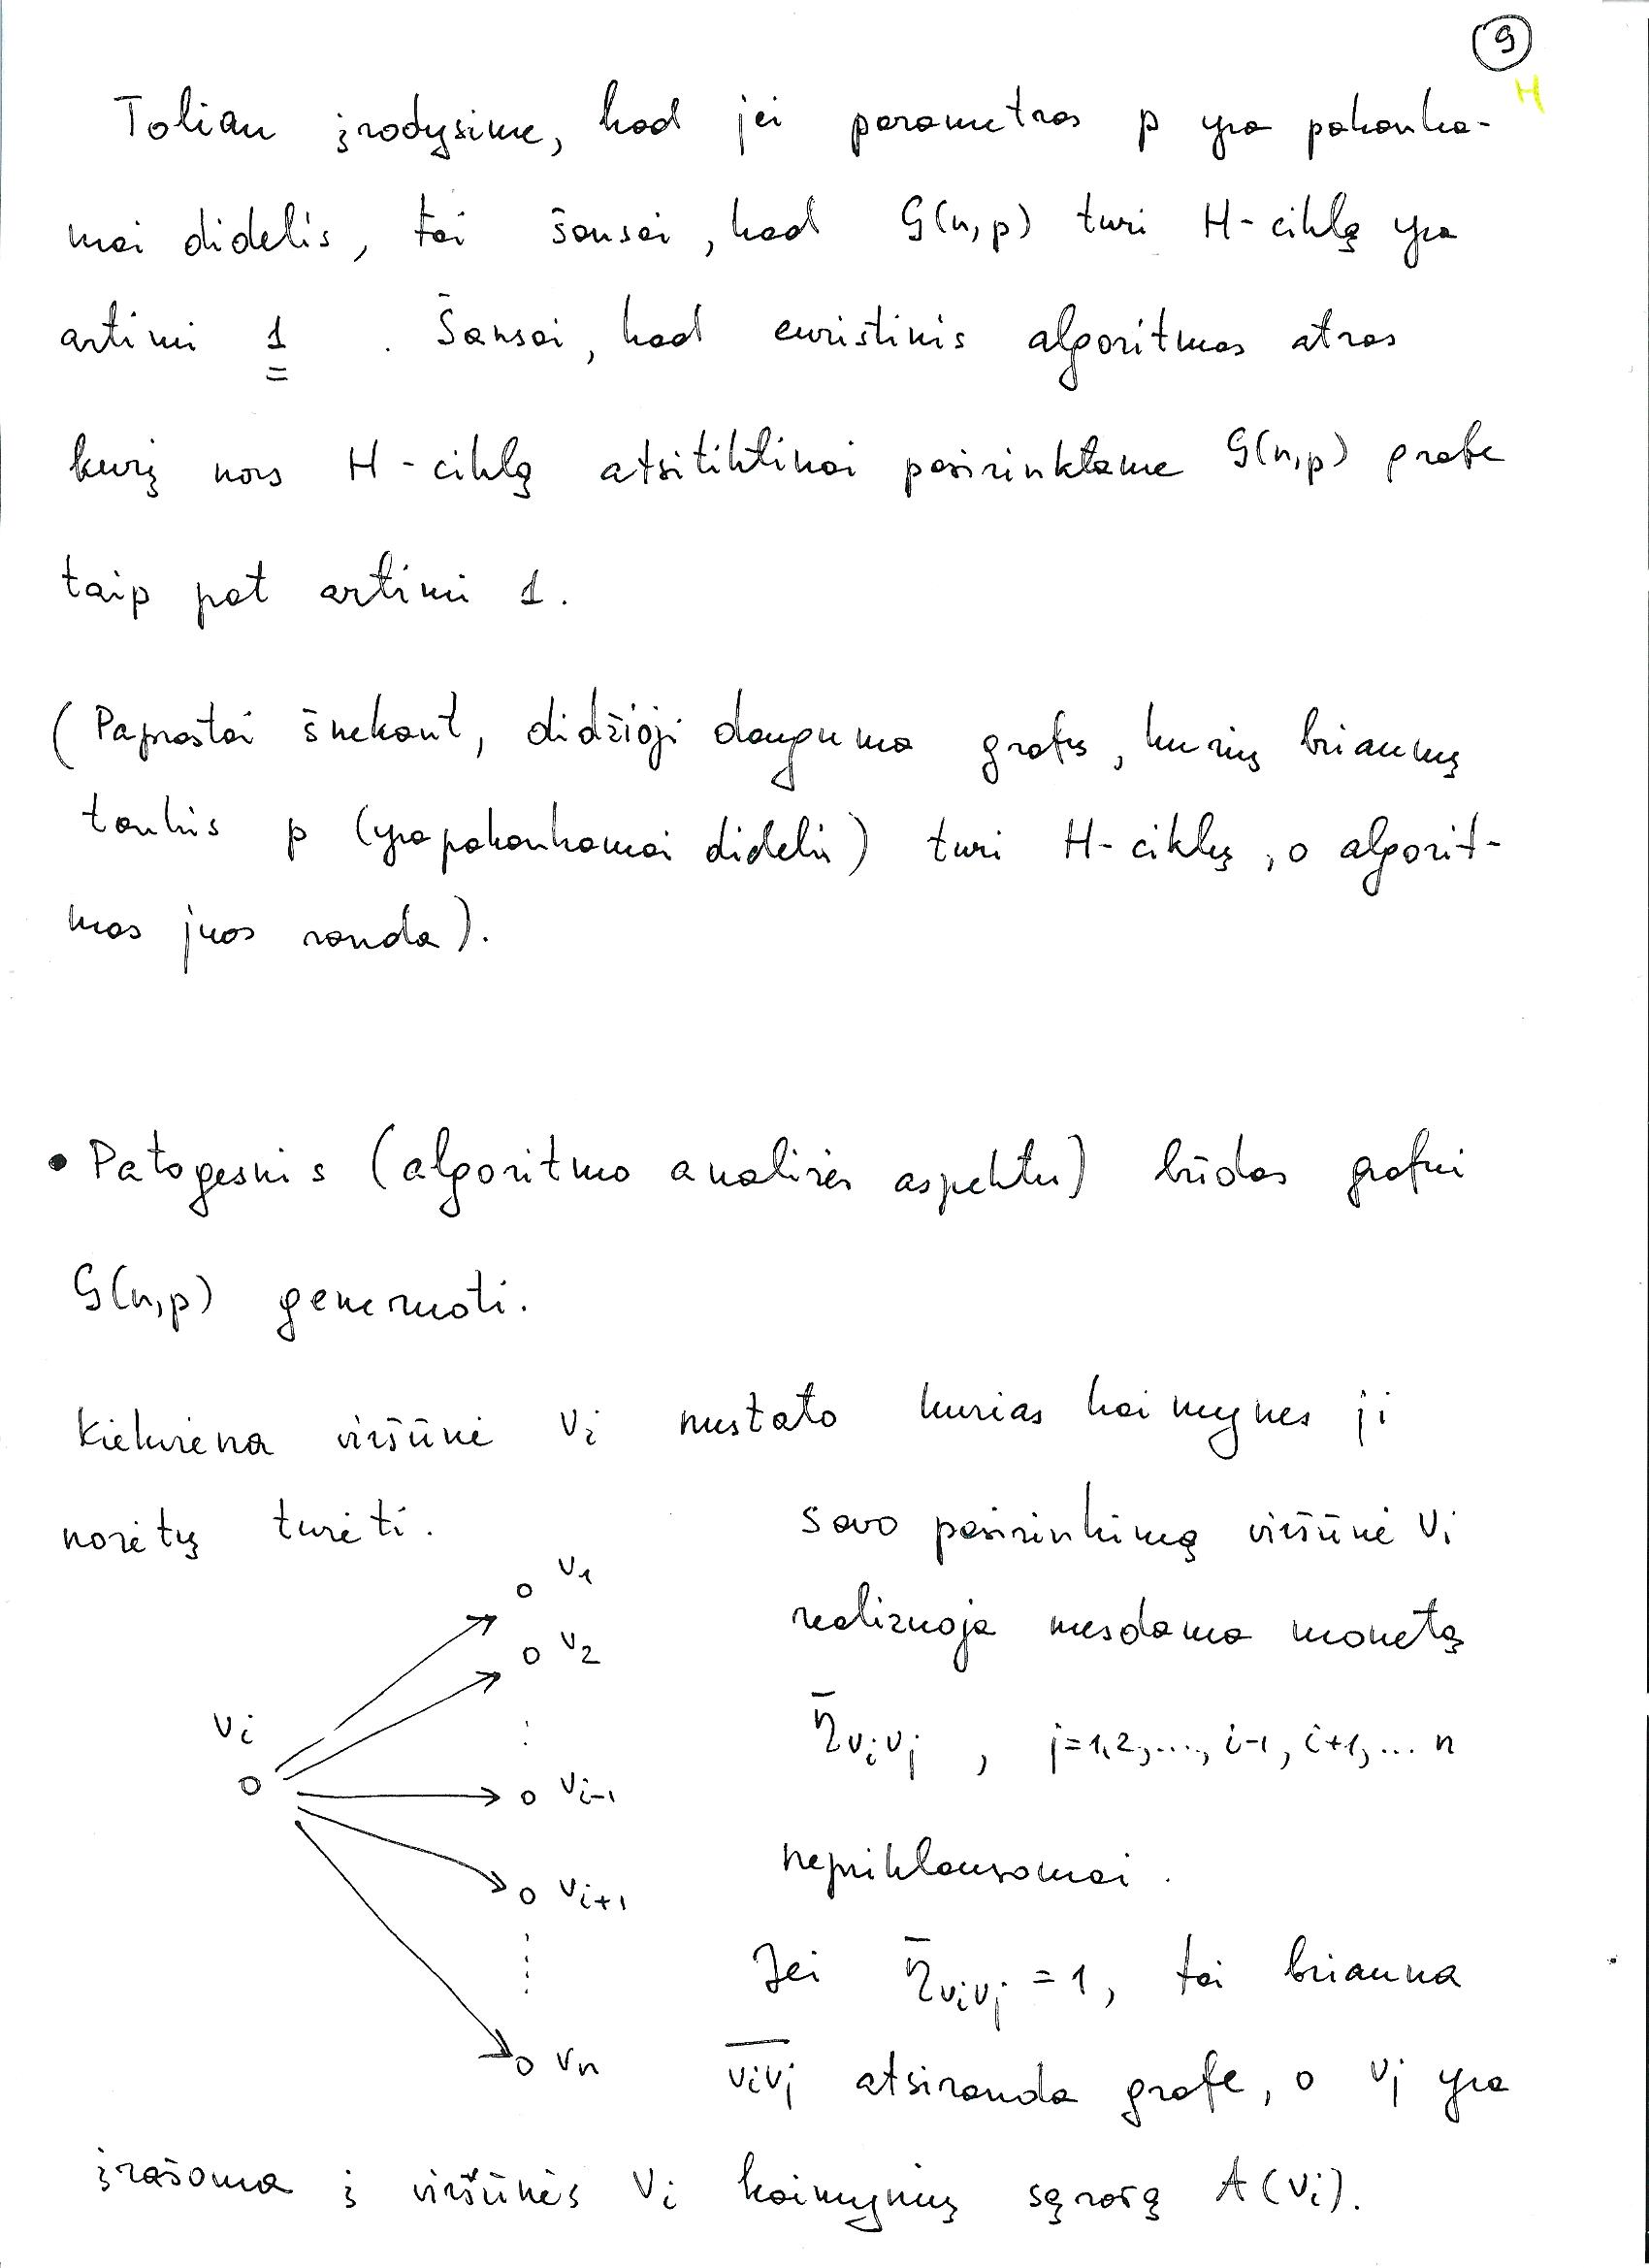 9
H
Toliau įrodysime, kad jei parametras p yra pakanka-
mai didelis, tai šansai, kad G(n,p) turi H-ciklą yra
artimi 1. Šansai, kad euristinis algoritmas atras
kurį nors H-ciklą atsitiktinai pasirinktame G(n,p) grafe
taip pat artimi 1.
(Paprastai šnekant, didžioji dauguma grafų, kurių briaunų
tankis p (yra pakankamai didelis) turi H-ciklų, o algorit-
mas juos randa).
• Patogesnis (algoritmo analizės aspektu) būdas grafui
G(n,p) generuoti.
Kiekviena viršūnė vi nustato kurias kaimynes ji
norėtų turėti.
Savo pasirinkimą viršūnė vi
realizuoja mesdama monetą
η̄vivj , j=1,2,..., i-1, i+1,... n
nepriklausomai.
Jei η̄vivj = 1, tai briauna
v̅i̅v̅j̅ atsiranda grafe, o vj yra
įrašoma į viršūnės vi kaimynių sąrašą A(vi).
v1
v2
vi
vi-1
vi+1
vn